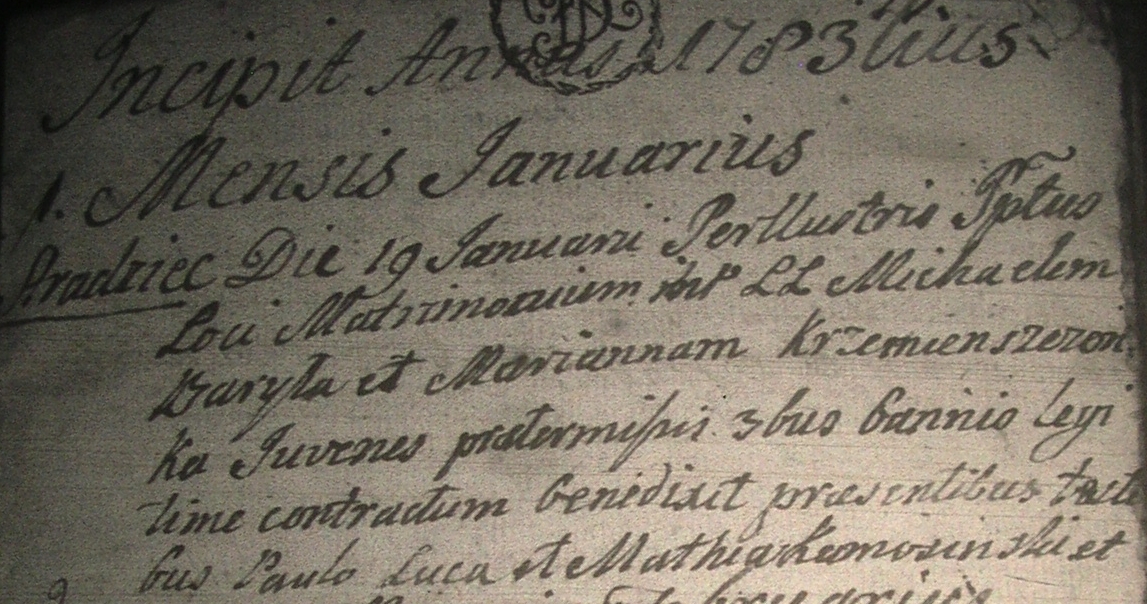 Incipit Annus 1783tius
1. Mensis Januarius
Sradziec Die 19 Januarii Perllustris Ppttus
Loci Matrimonium intr LL Michaelem
Baryła et Mariannam Krzemienszezon
ka Juvenes prætermissis 3bus bannis legi
time contractum benedixit præsentibus testi
bus Paulo Luca et Mathia Komosinski et